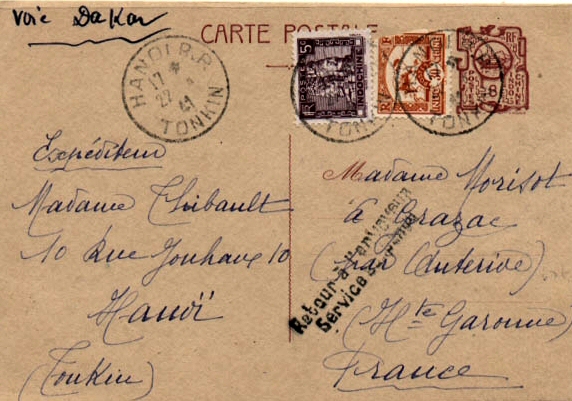 Voie Dakar
CARTE POSTALE
HANOI R.P.
17
22
41
TONKIN
5c
INDOCHINE
INDOCHINE
TONKIN
TONKIN
RF
8
Expéditeur
Madame Thibault
10 Rue Jouhaux 10
Hanoï
(Tonkin)
Madame Morisot
à Grazac
(par Auterive)
(Hte Garonne)
France
Retour à l'envoyeur
Service